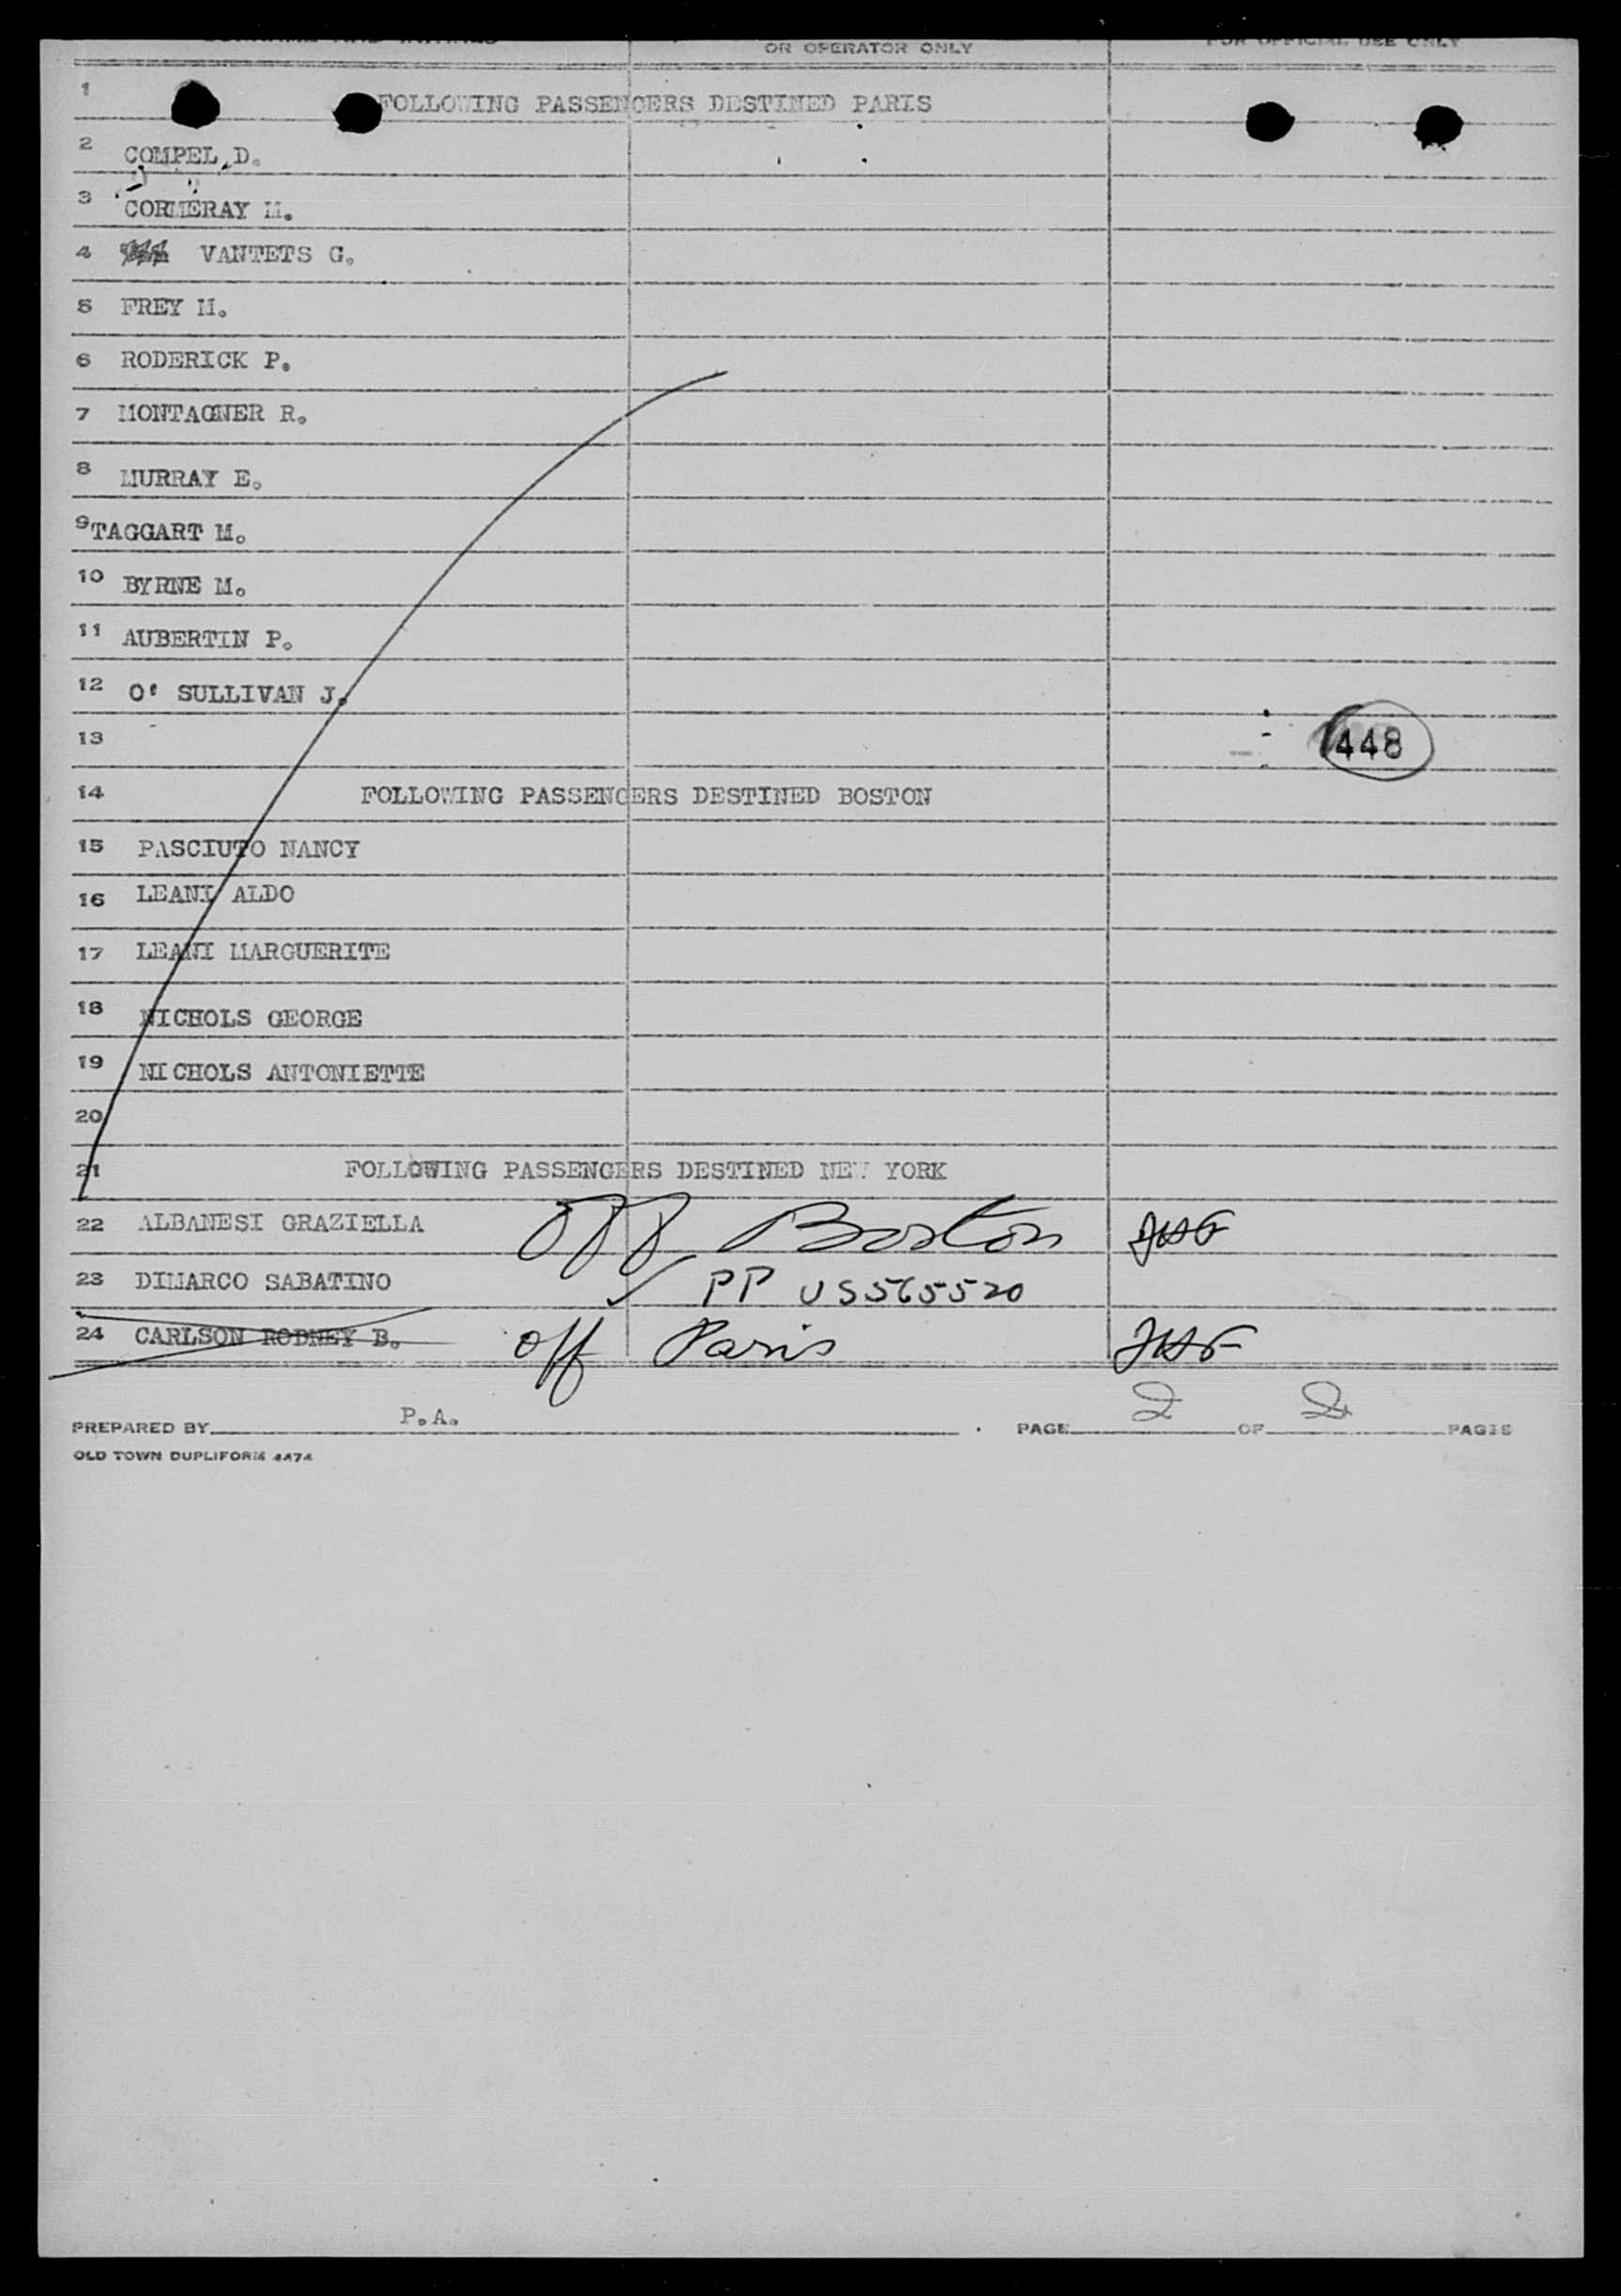 SURNAME AND INITIALS
OR OPERATOR ONLY
FOR OFFICIAL USE ONLY
1 FOLLOWING PASSENGERS DESTINED PARIS
2 COMPEL D.
3 CORMERAY M.
4 VANTETS G.
5 FREY M.
6 RODERICK P.
7 MONTAGNER R.
8 MURRAY E.
9 TAGGART M.
10 BYRNE M.
11 AUBERTIN P.
12 O' SULLIVAN J.
13 448
14 FOLLOWING PASSENGERS DESTINED BOSTON
15 PASCIUTO NANCY
16 LEANI ALDO
17 LEANI MARGUERITE
18 NICHOLS GEORGE
19 NICHOLS ANTONIETTE
20
21 FOLLOWING PASSENGERS DESTINED NEW YORK
22 ALBANESI GRAZIELLA Off Boston
23 DIMARCO SABATINO ✓ PP US565520
24 CARLSON RODNEY B. off Paris
PREPARED BY P.A. PAGE 2 OF 2 PAGES
OLD TOWN DUPLIFORM